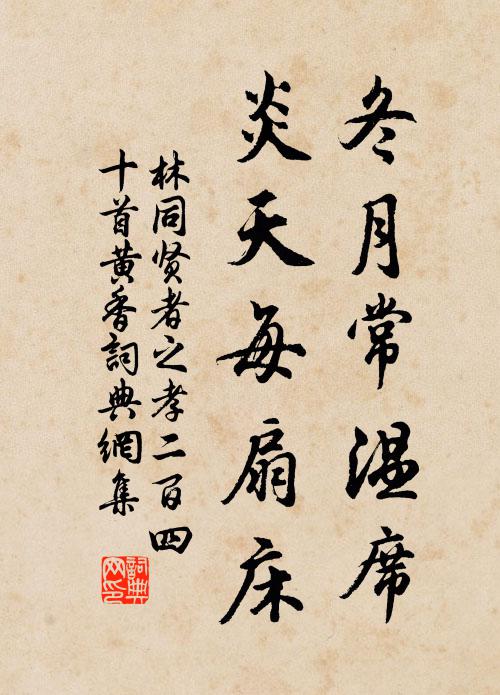 冬月常温席
炎天每扇床
林同贤者之孝二百四
十首黄香詞典網集
詞典
网印